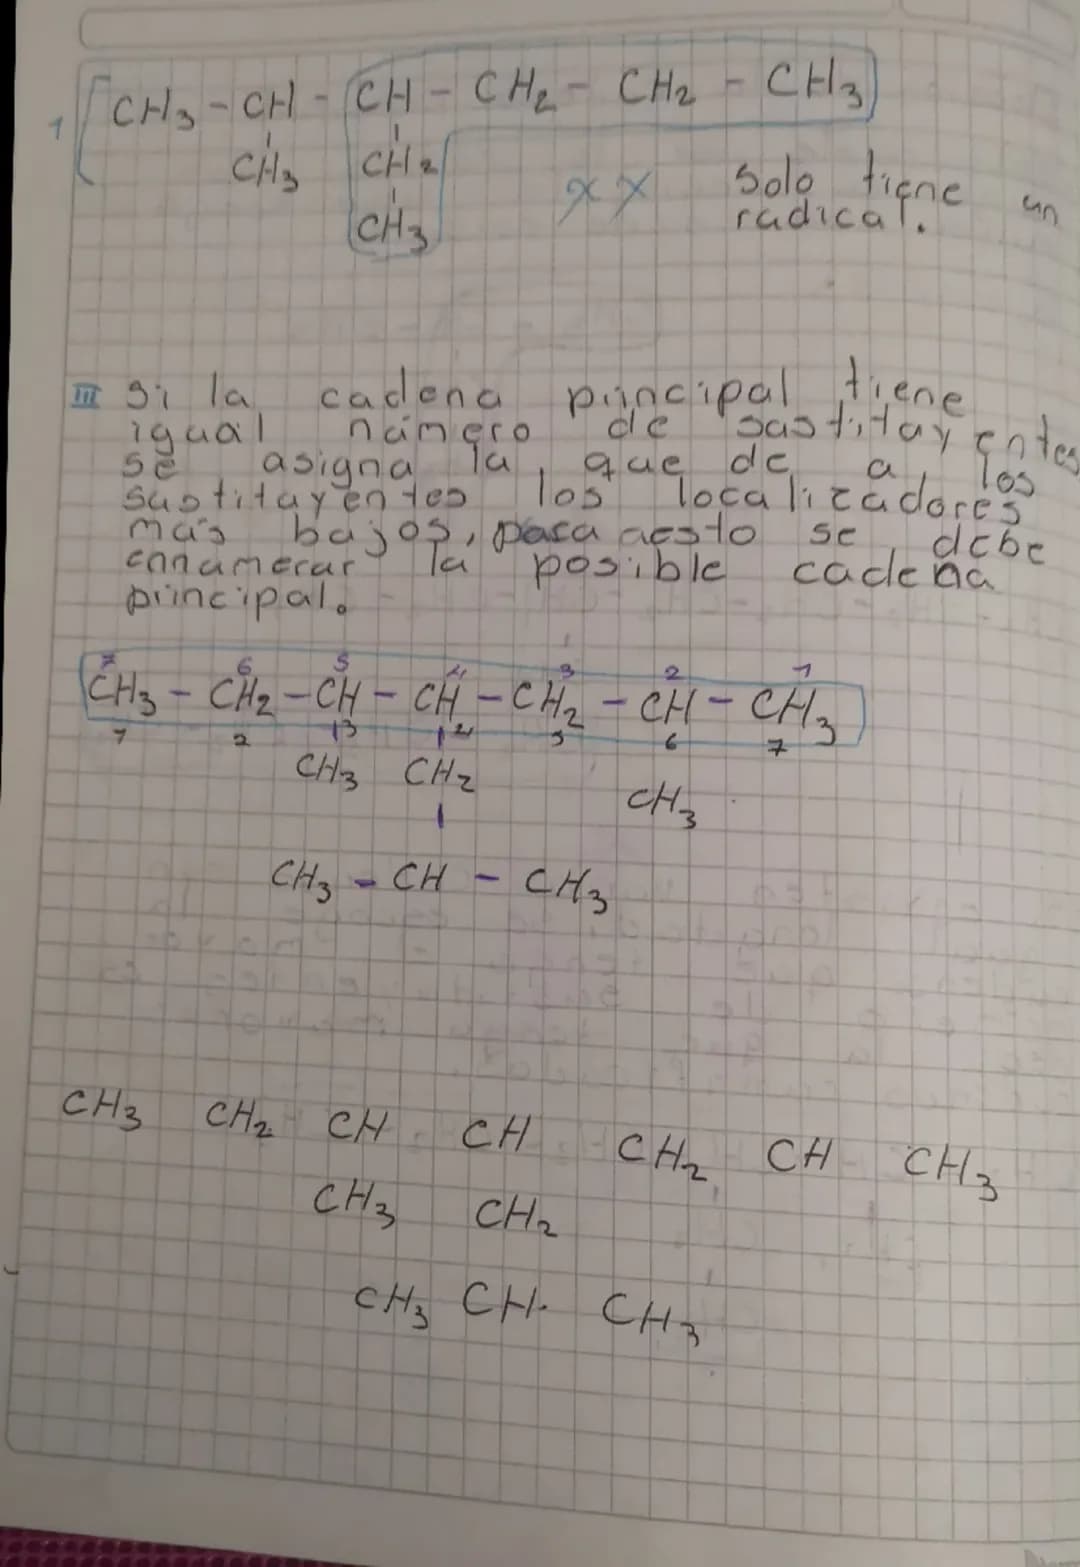 1 CH3 - CH - CH - CH2 - CH2 - CH3
CH3 CH2
CH3
xx solo tiene un
radical.
III Si la cadena principal tiene
igual número de sustituyentes
se asigna la que de a los
sustituyentes los localizadores
más bajos, para aesto se debe
ennumerar la posible cadena
principal.
7 6 5 4 3 2 1
CH3 - CH2 - CH - CH - CH2 - CH - CH3
1 2 3 4 5 6 7
CH3 CH2 CH3
CH3 - CH - CH3
CH3 CH2 CH CH CH2 CH CH3
CH3 CH2
CH3 CH CH3